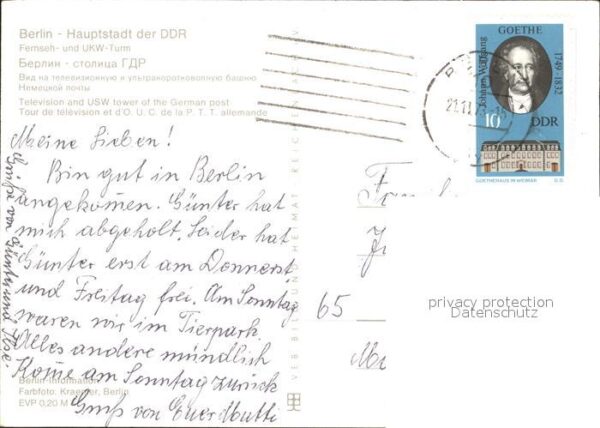 Berlin - Hauptstadt der DDR
Fernseh- und UKW-Turm
Берлин - столица ГДР
Вид на телевизионную и ультракоротковолновую башню
Немецкой почты
Television and USW tower of the German post
Tour de télévision et d'O. U. C. de la P. T. T. allemande
Meine Lieben!
Bin gut in Berlin
angekom̄en. Günter hat
mich abgeholt. Leider hat
Günter erst am Donnerst.
und Freitag frei. Am Sonntag
waren wir im Tierpark.
Alles andere mündlich
Kom̄e am Sonntag zurück
Gruß von Euer Mutti
Grüße von Günter und Ilse
Berlin-Information
Farbfoto: Kraemer, Berlin
EVP 0,20 M
VEB BILD UND HEIMAT REICHENBACH
GOETHE
Johann Wolfgang
1749-1832
10 DDR
GOETHEHAUS IN WEIMAR
21.11.73
65
privacy protection
Datenschutz